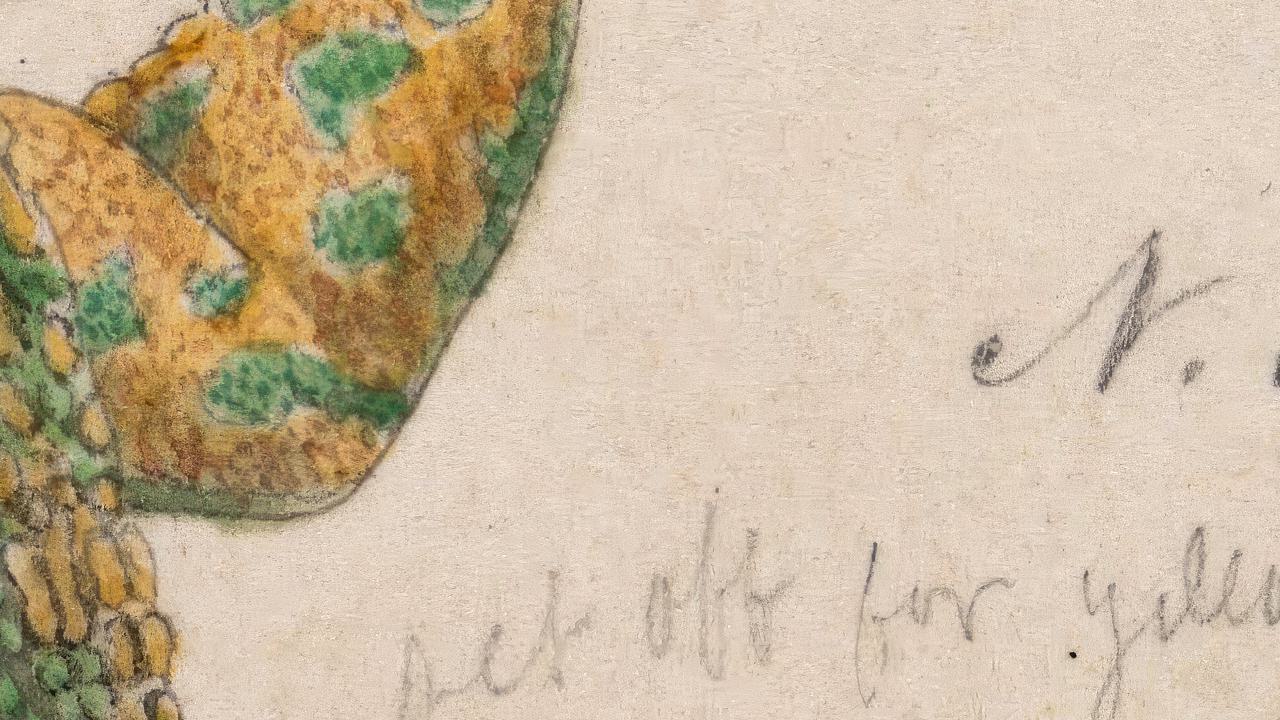 N.
set off for yello